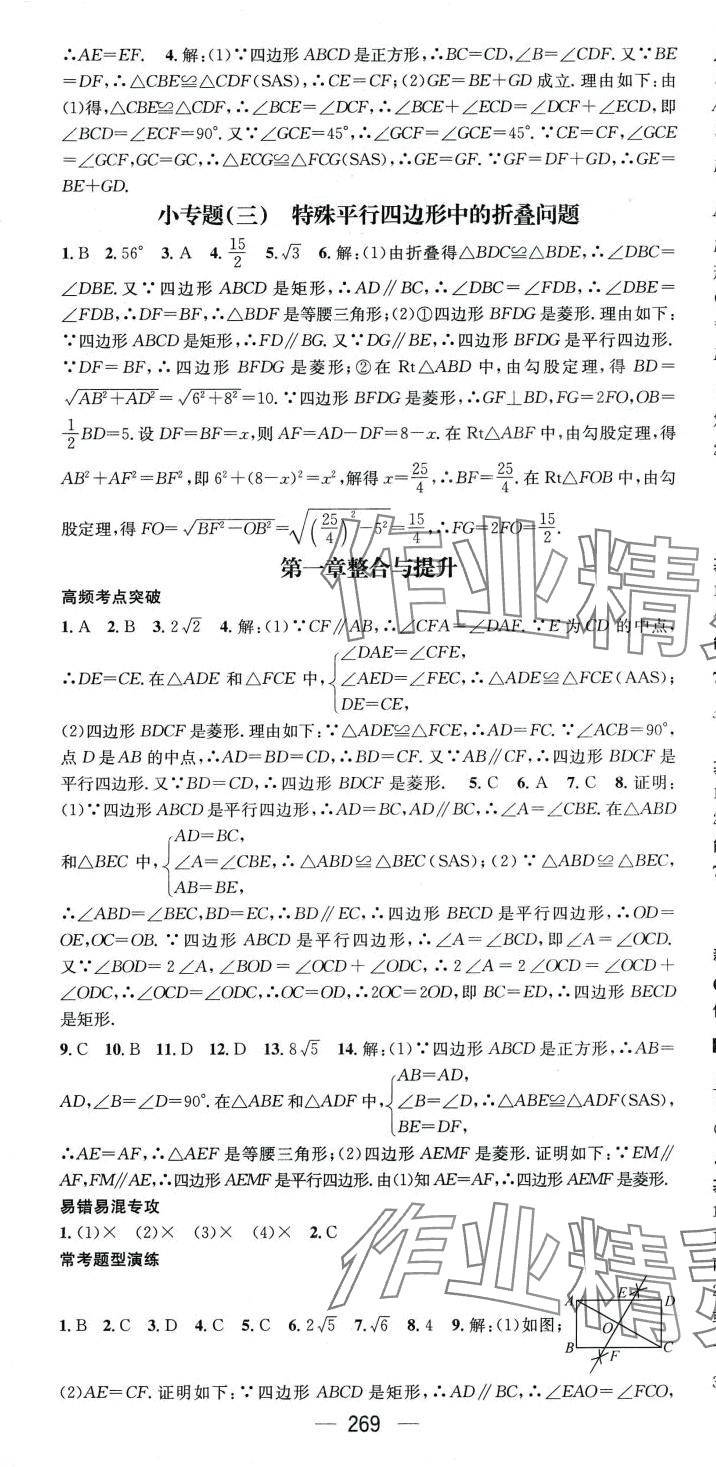 ∴AE=EF.  4.解:(1)∵四边形 ABCD 是正方形,∴BC=CD,∠B=∠CDF.又∵BE
=DF,∴△CBE≌△CDF(SAS),∴CE=CF;(2)GE=BE+GD 成立.理由如下:由
(1)得,△CBE≌△CDF,∴∠BCE=∠DCF,∴∠BCE+∠ECD=∠DCF+∠ECD,即
∠BCD=∠ECF=90°.又∵∠GCE=45°,∴∠GCF=∠GCE=45°.∵CE=CF,∠GCE
=∠GCF,GC=GC,∴△ECG≌△FCG(SAS),∴GE=GF.∵GF=DF+GD,∴GE=
BE+GD.
小专题(三)  特殊平行四边形中的折叠问题
1.B  2.56°  3.A  4.15/2  5.√3  6.解:(1)由折叠得△BDC≌△BDE,∴∠DBC=
∠DBE.又∵四边形 ABCD 是矩形,∴AD∥BC,∴∠DBC=∠FDB,∴∠DBE=
∠FDB,∴DF=BF,∴△BDF 是等腰三角形;(2)①四边形 BFDG 是菱形.理由如下:
∵四边形 ABCD 是矩形,∴FD∥BG.又∵DG∥BE,∴四边形 BFDG 是平行四边形.
∵DF=BF,∴四边形 BFDG 是菱形;②在 Rt△ABD 中,由勾股定理,得 BD=
√(AB²+AD²)=√(6²+8²)=10.∵四边形 BFDG 是菱形,∴GF⊥BD,FG=2FO,OB=
1/2BD=5.设 DF=BF=x,则 AF=AD-DF=8-x.在 Rt△ABF 中,由勾股定理,得
AB²+AF²=BF²,即 6²+(8-x)²=x²,解得 x=25/4,∴BF=25/4.在 Rt△FOB 中,由勾
股定理,得 FO=√(BF²-OB²)=√((25/4)²-5²)=15/4,∴FG=2FO=15/2.
第一章整合与提升
高频考点突破
1.A  2.B  3.2√2  4.解:(1)∵CF∥AB,∴∠CFA=∠DAF.∵E 为 CD 的中点,
∴DE=CE.在△ADE 和△FCE 中,{∠DAE=∠CFE, ∠AED=∠FEC, DE=CE,∴△ADE≌△FCE(AAS);
(2)四边形 BDCF 是菱形.理由如下:∵△ADE≌△FCE,∴AD=FC.∵∠ACB=90°,
点 D 是 AB 的中点,∴AD=BD=CD,∴BD=CF.又∵AB∥CF,∴四边形 BDCF 是
平行四边形.又∵BD=CD,∴四边形 BDCF 是菱形.  5.C  6.A  7.C  8.证明:
(1)∵四边形 ABCD 是平行四边形,∴AD=BC,AD∥BC,∴∠A=∠CBE.在△ABD
和△BEC 中,{AD=BC, ∠A=∠CBE, AB=BE,∴△ABD≌△BEC(SAS);(2)∵△ABD≌△BEC,
∴∠ABD=∠BEC,BD=EC,∴BD∥EC,∴四边形 BECD 是平行四边形,∴OD=
OE,OC=OB.∵四边形 ABCD 是平行四边形,∴∠A=∠BCD,即∠A=∠OCD.
又∵∠BOD=2∠A,∠BOD=∠OCD+∠ODC,∴2∠A=2∠OCD=∠OCD+
∠ODC,∴∠OCD=∠ODC,∴OC=OD,∴2OC=2OD,即 BC=ED,∴四边形 BECD
是矩形.
9.C  10.B  11.D  12.D  13.8√5  14.解:(1)∵四边形 ABCD 是正方形,∴AB=
AD,∠B=∠D=90°.在△ABE 和△ADF 中,{AB=AD, ∠B=∠D, BE=DF,∴△ABE≌△ADF(SAS),
∴AE=AF,∴△AEF 是等腰三角形;(2)四边形 AEMF 是菱形.证明如下:∵EM∥
AF,FM∥AE,∴四边形 AEMF 是平行四边形.由(1)知 AE=AF,∴四边形 AEMF 是菱形.
易错易混专攻
1.(1)×  (2)×  (3)×  (4)×  2.C
常考题型演练
1.B  2.C  3.D  4.C  5.C  6.2√5  7.√6  8.4  9.解:(1)如图;
A E D O B F C
(2)AE=CF.证明如下:∵四边形 ABCD 是矩形,∴AD∥BC,∴∠EAO=∠FCO,
— 269 —
作业精灵
作业精灵